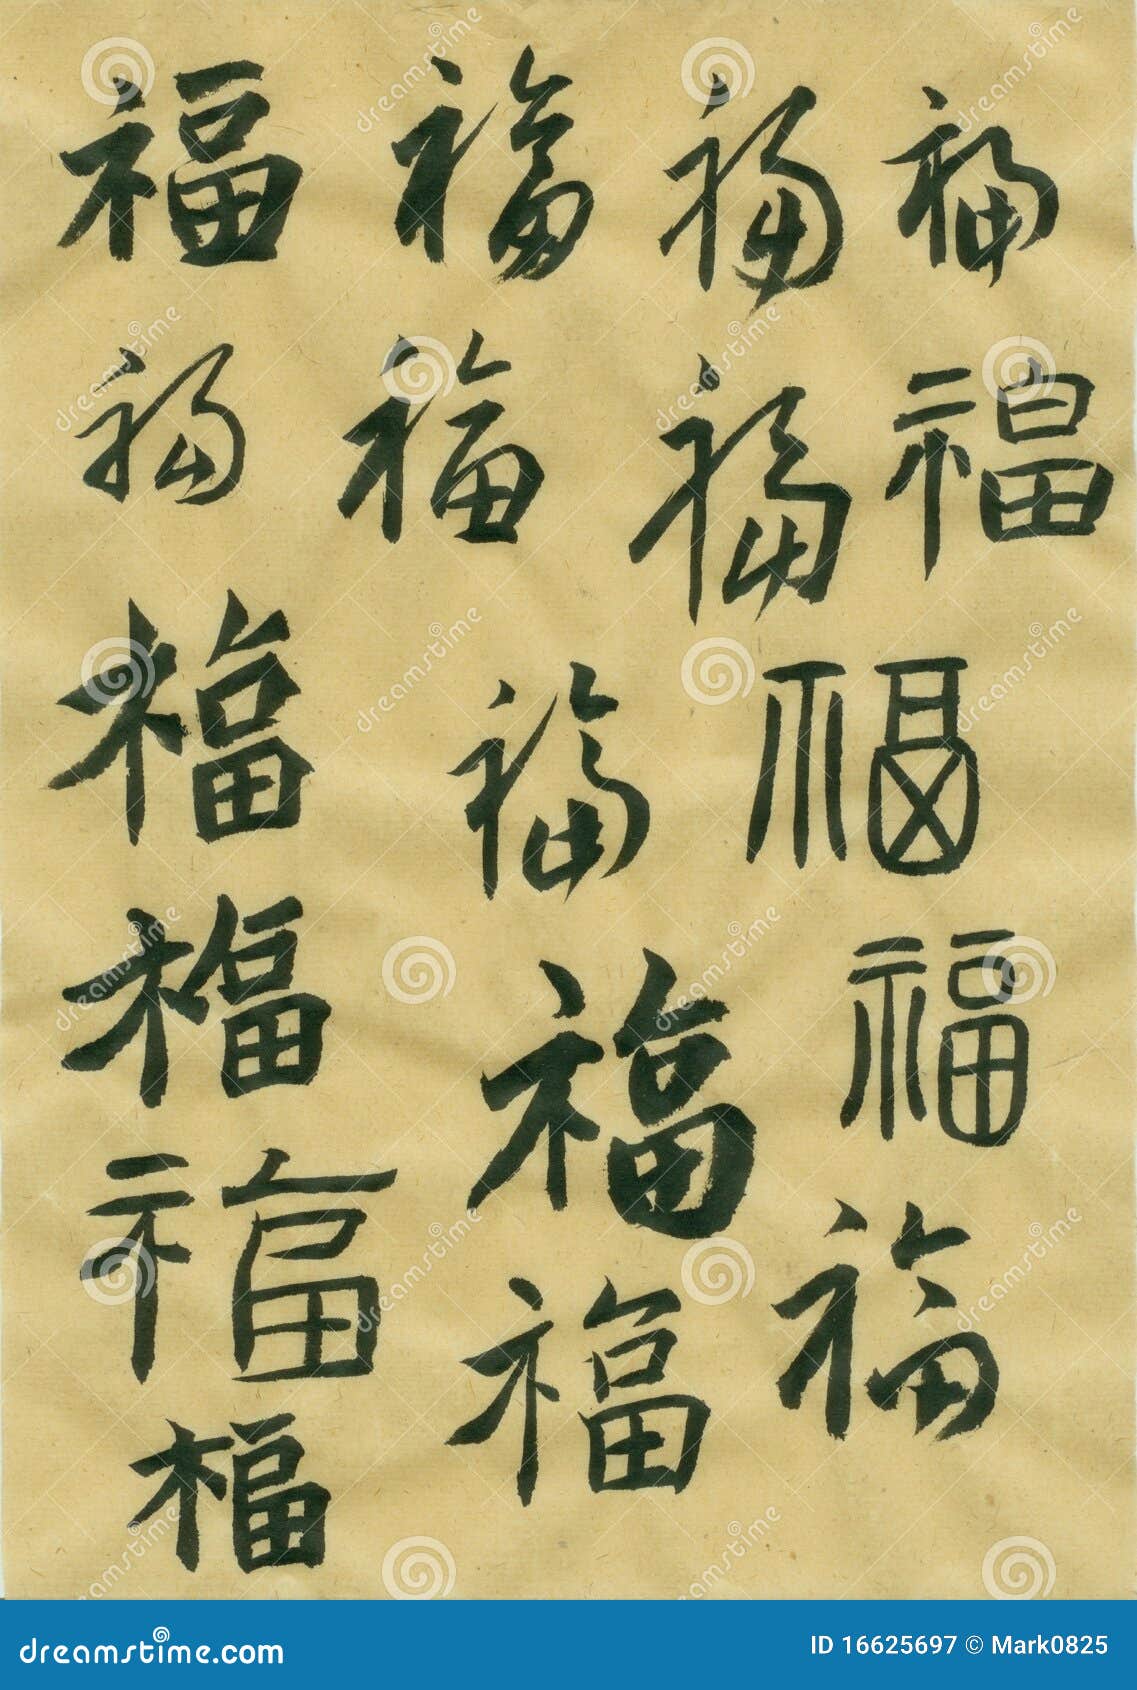 福 福 福 福
福 福 福 福
福 福 福
福 福 福
福 福 福
福
dreamstime.com
ID 16625697 © Mark0825